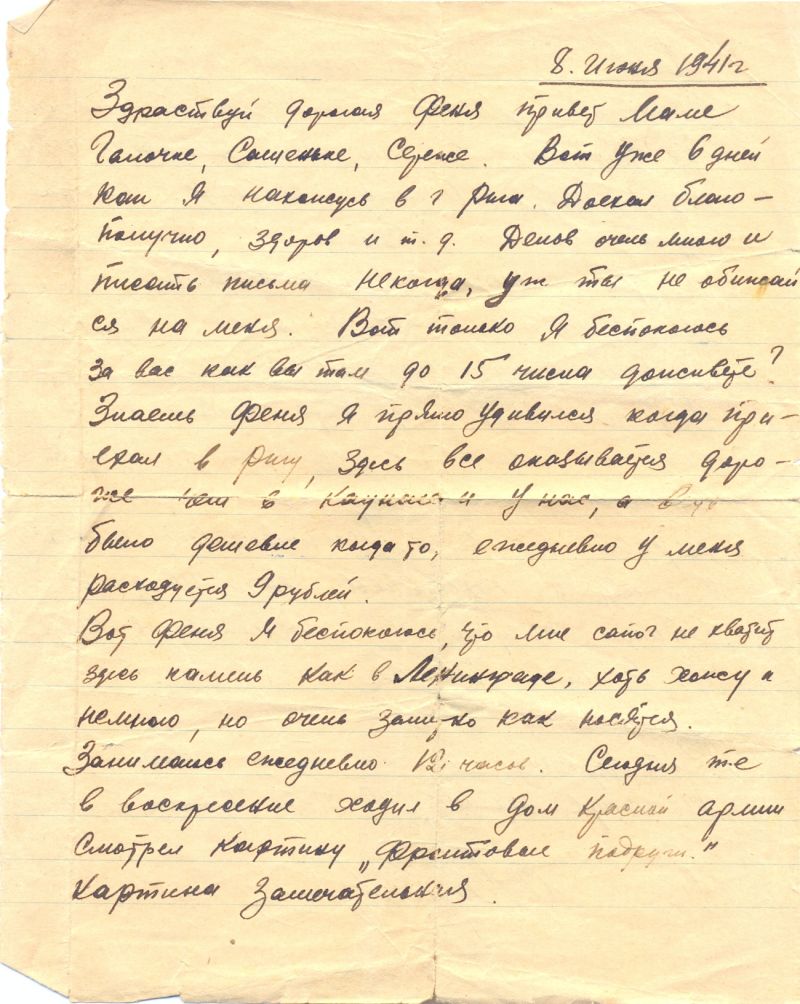 8. Июня 1941 г
Здраствуй дорогая Феня привет Маме
Галочке, Сашеньке, Сереже. Вот уже 6 дней
как Я нахожусь в г Рига. Доехал благо-
получно, здоров и т.д. Делов очень много и
писать письма некогда, уж ты не обижай
ся на меня. Вот только Я беспокоюсь
за вас как вы там до 15 числа доживете?
Знаешь Феня Я прямо удивился когда при-
ехал в Ригу, здесь все оказывается доро-
же чем в Каунасе и У нас, а
было дешевле когда то, ежедневно у меня
расходуется 9 рублей.
Вот Феня Я беспокоюсь, что мне сапог не хватит
здесь камень как в Ленинграде, хоть хожу и
немного, но очень как носятся.
Занимаюсь ежедневно 12 часов. Сегодня т-е
в воскресение ходил в дом Красной армии
Смотрел картину „Фронтовые подруги."
Картина Замечательная.